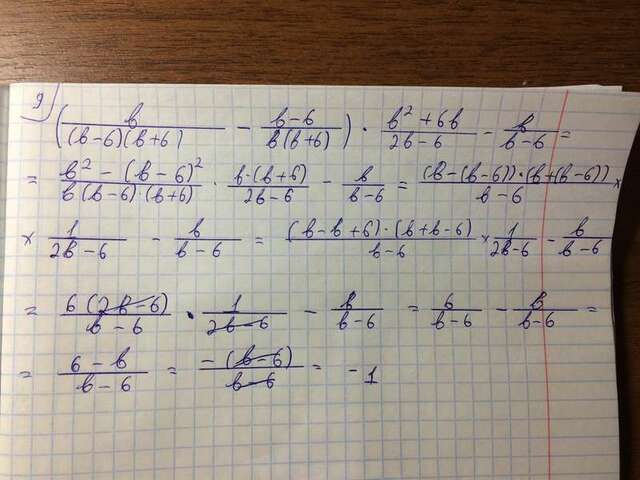 9) (b/((b-6)(b+6)) - (b-6)/(b(b+6))) · (b²+6b)/(2b-6) - b/(b-6) =
= (b²-(b-6)²)/(b(b-6)(b+6)) · (b·(b+6))/(2b-6) - b/(b-6) = ((b-(b-6))·(b+(b-6)))/(b-6) ×
× 1/(2b-6) - b/(b-6) = ((b-b+6)·(b+b-6))/(b-6) × 1/(2b-6) - b/(b-6)
= (6(2b-6))/(b-6) · 1/(2b-6) - b/(b-6) = 6/(b-6) - b/(b-6) =
= (6-b)/(b-6) = (-(b-6))/(b-6) = -1